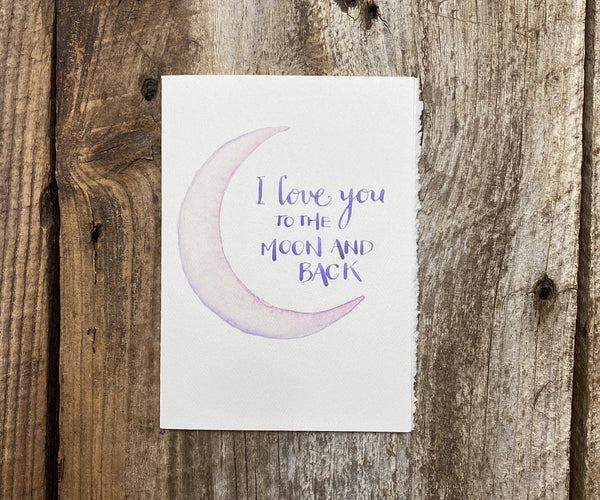 I love you
TO THE
MOON AND
BACK